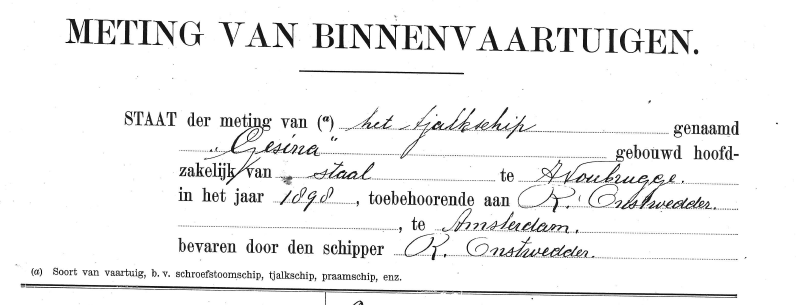 METING VAN BINNENVAARTUIGEN.
STAAT der meting van (a) het tjalkschip genaamd
„Gesina" gebouwd hoofd-
zakelijk van staal te
in het jaar 1898, toebehoorende aan R. Onstwedder.
, te Amsterdam.
bevaren door den schipper R. Onstwedder.
(a) Soort van vaartuig, b. v. schroefstoomschip, tjalkschip, praamschip, enz.